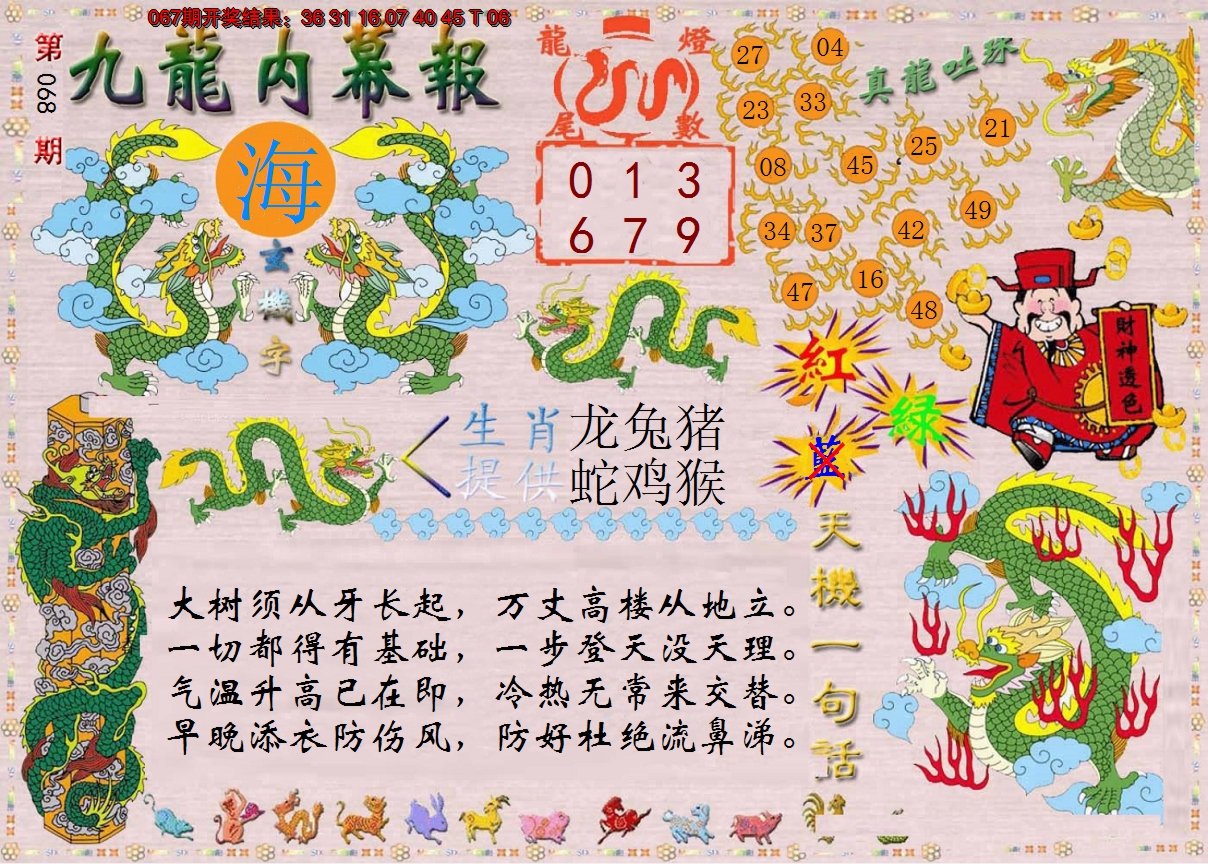 067期开奖结果：36 31 16 07 40 45 T 06
第
068
期
九龍内幕報
海
玄
機
字
龍 燈
尾 數
0 1 3
6 7 9
真龍吐珠
27
04
23
33
25
21
08
45
34
37
42
49
47
16
48
財神透色
紅
緑
藍
生肖 龙兔猪
提供 蛇鸡猴
天機一句話
大树须从牙长起，万丈高楼从地立。
一切都得有基础，一步登天没天理。
气温升高已在即，冷热无常来交替。
早晚添衣防伤风，防好杜绝流鼻涕。